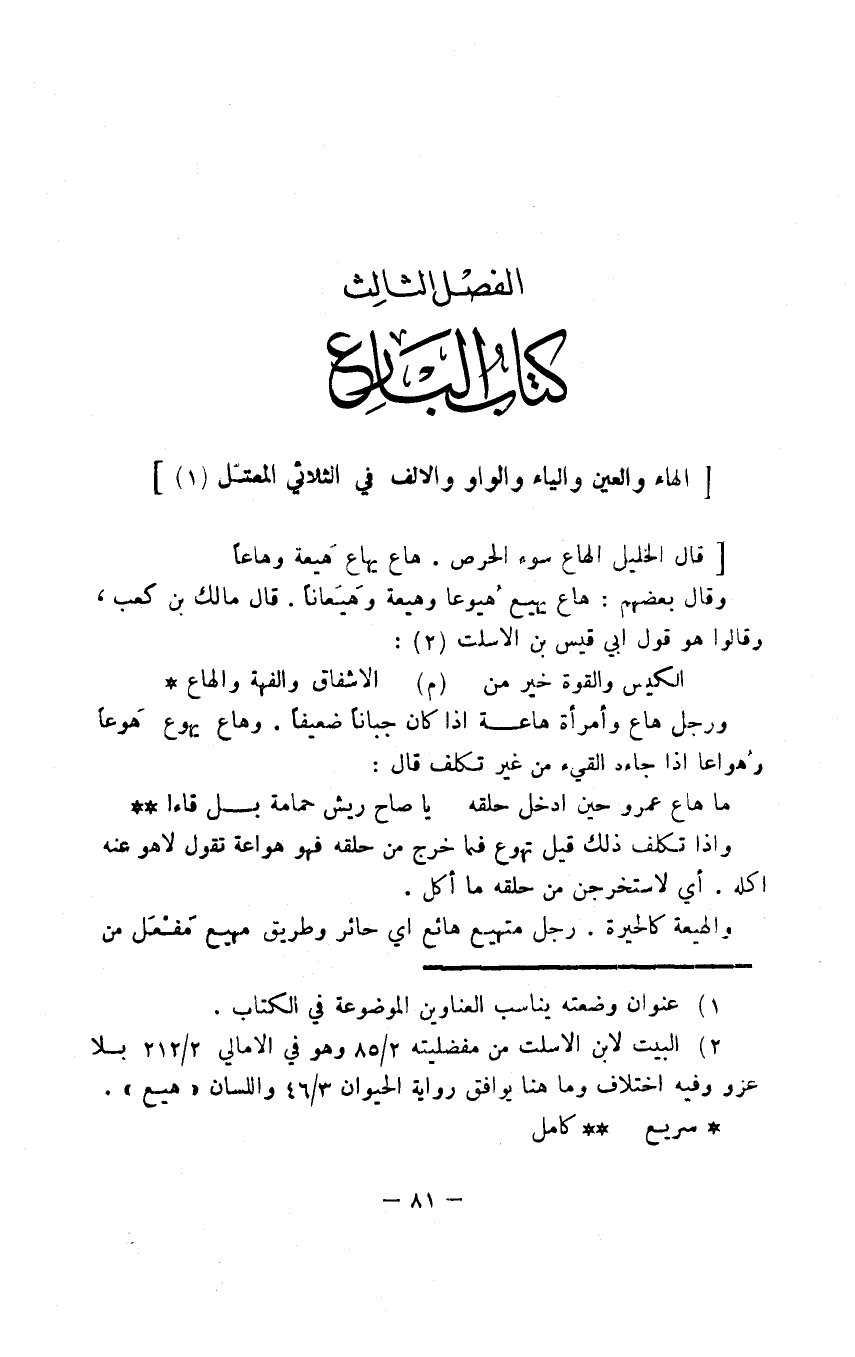 الفصْل الثالِث
كتابُ البَارِع
[ الهاء والعين والياء والواو والالف في الثلاثي المعتلّ (١) ]
[ قال الخليل الهاع سوء الحرص . هاع يهاع هَيعة وهاعاً
وقال بعضهم : هاع يهيع هُيوعا وهيعة وهَيَعاناً . قال مالك بن كعب ،
وقالوا هو قول ابي قيس بن الاسلت (٢) :
الكيس والقوة خير من (م) الاشفاق والفهة والهاع *
ورجل هاع وأمرأة هاعــة اذا كان جباناً ضعيفاً . وهاع يهوع هَوعاً
وهُواعا اذا جاءه القيء من غير تكلف قال :
ما هاع عمرو حين ادخل حلقه يا صاح ريش حمامة بــل قاءا **
واذا تكلف ذلك قيل تهوع فما خرج من حلقه فهو هواعة تقول لاهو عنه
اكله . أي لاستخرجن من حلقه ما أكل .
والهيعة كالحيرة . رجل متهيع هائع اي حائر وطريق مهيع مَفْعَل من
١) عنوان وضعته يناسب العناوين الموضوعة في الكتاب .
٢) البيت لابن الاسلت من مفضليته ٨٥/٢ وهو في الامالي ٢١٢/٢ بــلا
عزو وفيه اختلاف وما هنا يوافق رواية الحيوان ٤٦/٣ واللسان « هيع » .
* سريع ** كامل
— ٨١ —